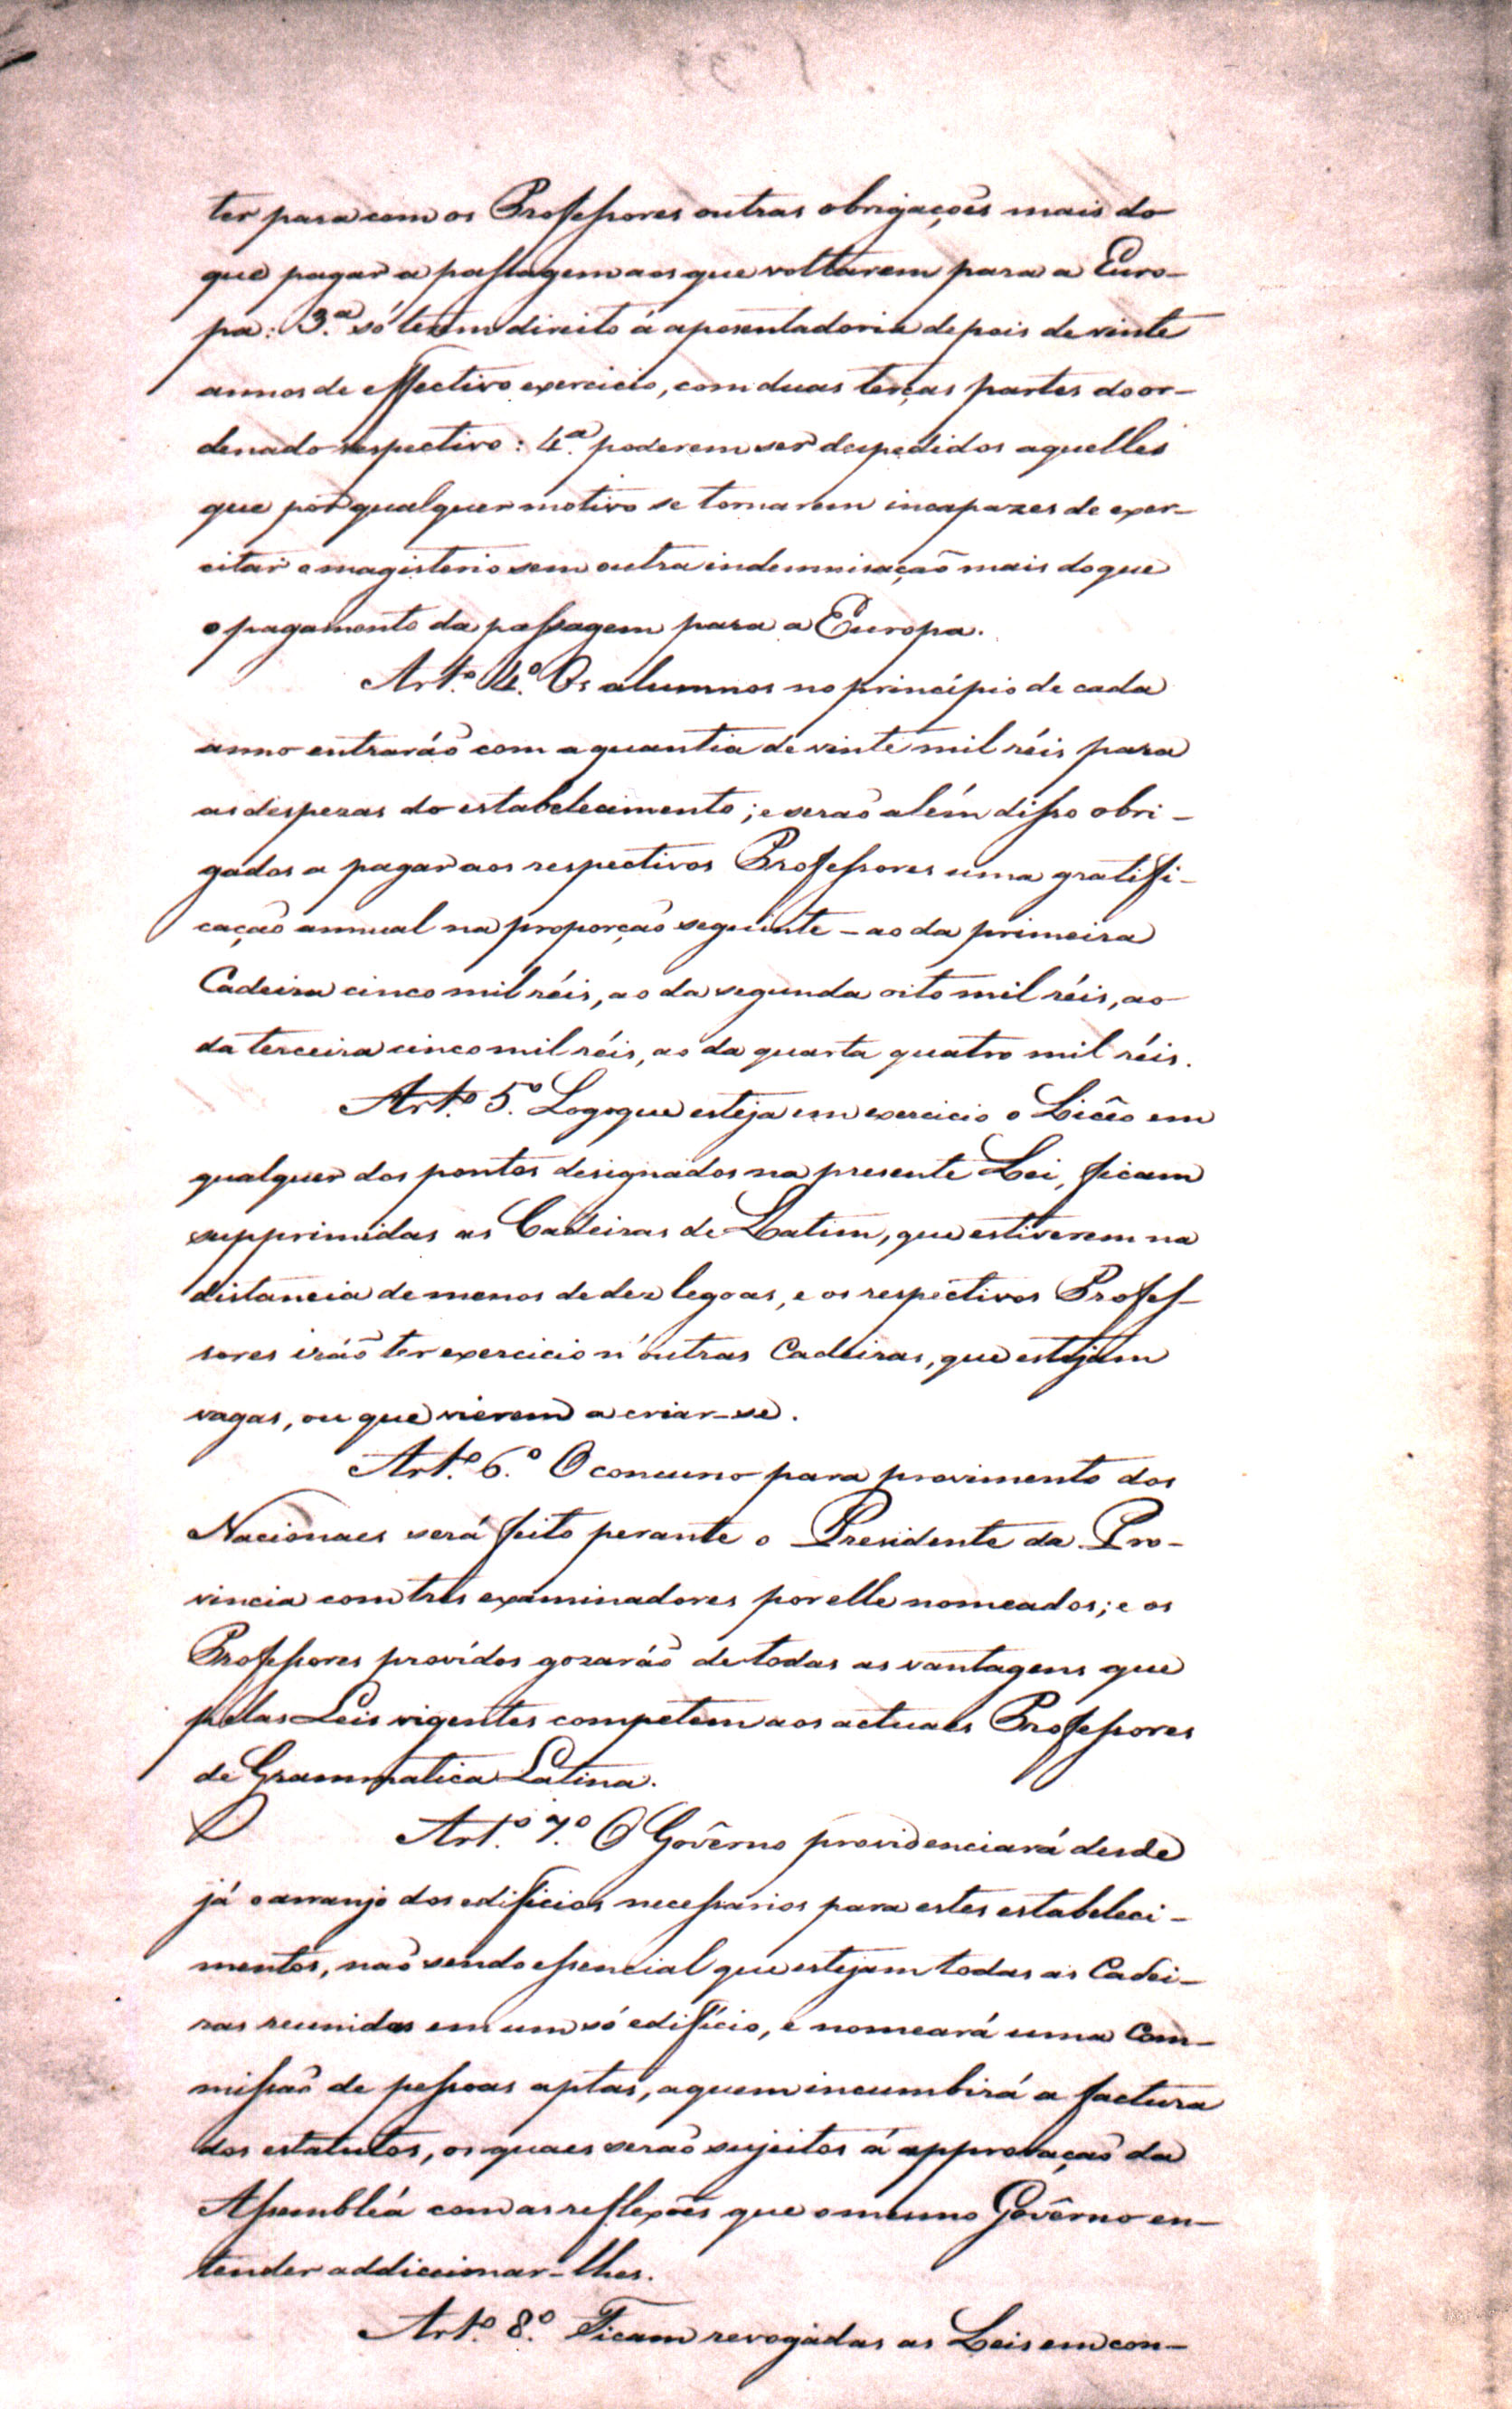 ter para com os Professores outras obrigações mais do
que pagar a passagem aos que voltarem para a Euro-
pa: 3.ª só terem direito á aposentadoria depois de vinte
annos de effectivo exercicio, com duas terças partes do or-
denado respectivo: 4.ª poderem ser despedidos aquelles
que por qualquer motivo se tornarem incapazes de exer-
citar o magisterio sem outra indemnisação mais do que
o pagamento da passagem para a Europa.
Art.º 4.º Os alumnos no princípio de cada
anno entraráõ com a quantia de vinte mil réis para
as despezas do estabelecimento; e seraõ além disso obri-
gados a pagar aos respectivos Professores uma gratifi-
cação annual na proporção seguinte - ao da primeira
Cadeira cinco mil réis, ao da segunda oito mil réis, ao
da terceira cinco mil réis, ao da quarta quatro mil réis.
Art.º 5.º Logo que esteja em exercicio o Licêo em
qualquer dos pontos designados na presente Lei, ficam
supprimidas as Cadeiras de Latim, que estiverem na
distancia de menos de dez legoas, e os respectivos Profes-
sores iráõ ter exercicio n'outras Cadeiras, que estejam
vagas, ou que vierem a criar-se.
Art.º 6.º O concurso para provimento dos
Nacionaes será feito perante o Presidente da Pro-
vincia com tres examinadores por elle nomeados; e os
Professores provídos gozaráõ de todas as vantagens que
pelas Leis vigentes competem aos actuaes Professores
de Grammatica Latina.
Art.º 7.º O Govêrno providenciará desde
já o arranjo dos edificios necessarios para estes estabeleci-
mentos, naõ sendo essencial que estejam todas as Cadei-
ras reunidas em um só edifício, e nomeará uma Com-
missaõ de pessoas aptas, a quem incumbirá a factura
dos estatutos, os quaes seraõ sujeitos á approvaçaõ da
Assembléa com as reflexões que o mesmo Govêrno en-
tender addiccionar-lhes.
Art.º 8.º Ficam revogadas as Leis em con-